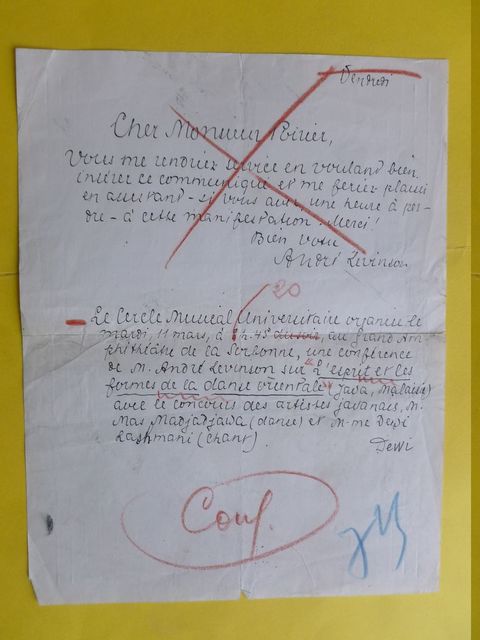 Vendredi
Cher Monsieur Poirier,
Vous me rendriez service en voulant bien
insérer ce communiqué et me feriez plaisir
en assistant - si vous avez une heure à per-
dre - à cette manifestation. Merci!
Bien votre
André Levinson
20
Le Cercle Musical Universitaire organise le
mardi, 11 mars, à 8 h. 45 du soir, au grand Am-
phithéâtre de la Sorbonne, une conférence
de M. André Levinson sur "L'esprit et les
formes de la danse orientale" (Java, Malaisie)
avec le concours des artistes javanais, M.
Mas Madjadjawa (danse) et M-me Dewi
Rashmani (chant).
Dewi
Conf.